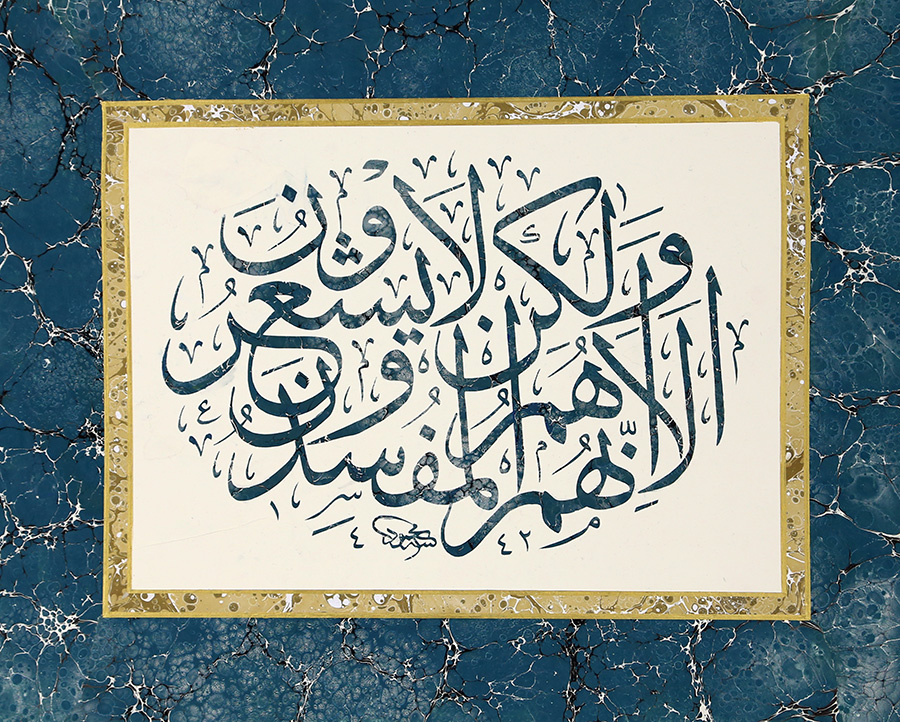 أَلَا إِنَّهُمْ هُمُ الْمُفْسِدُونَ
وَلَٰكِنْ لَا يَشْعُرُونَ